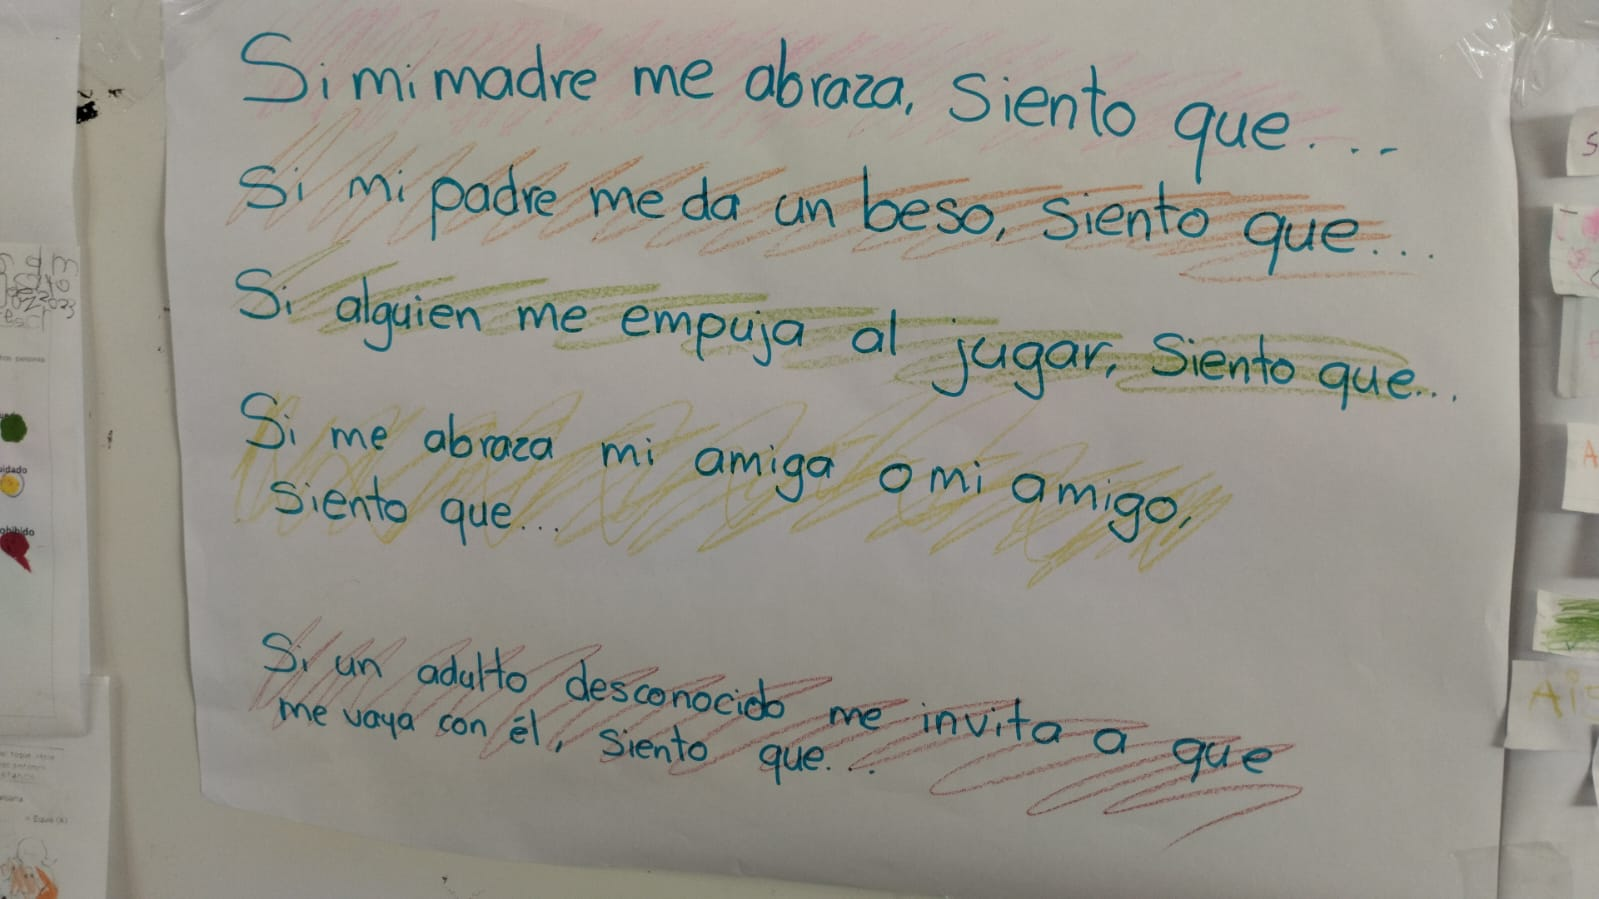 Si mi madre me abraza, siento que...
Si mi padre me da un beso, siento que...
Si alguien me empuja al jugar, siento que...
Si me abraza mi amiga o mi amigo,
siento que...
Si un adulto desconocido me invita a que
me vaya con él, siento que...